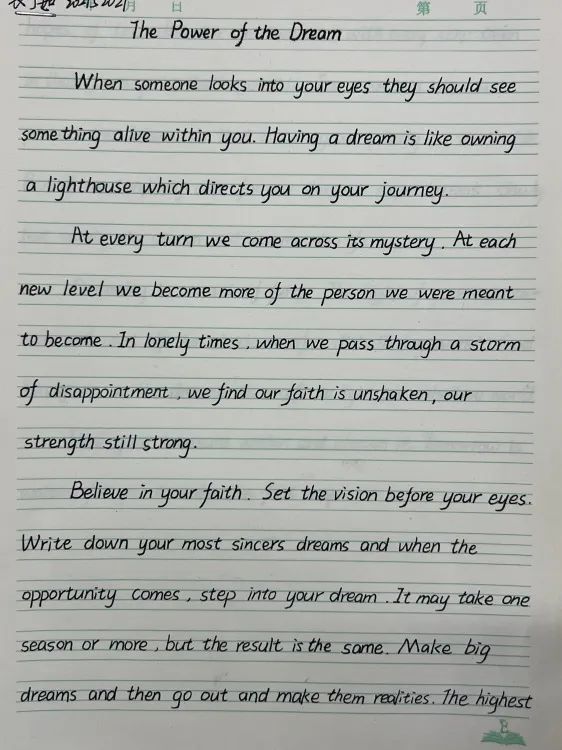 月 日 第 页
The Power of the Dream
When someone looks into your eyes they should see
something alive within you. Having a dream is like owning
a lighthouse which directs you on your journey.
At every turn we come across its mystery. At each
new level we become more of the person we were meant
to become. In lonely times, when we pass through a storm
of disappointment, we find our faith is unshaken, our
strength still strong.
Believe in your faith. Set the vision before your eyes.
Write down your most sincers dreams and when the
opportunity comes, step into your dream. It may take one
season or more, but the result is the same. Make big
dreams and then go out and make them realities. The highest